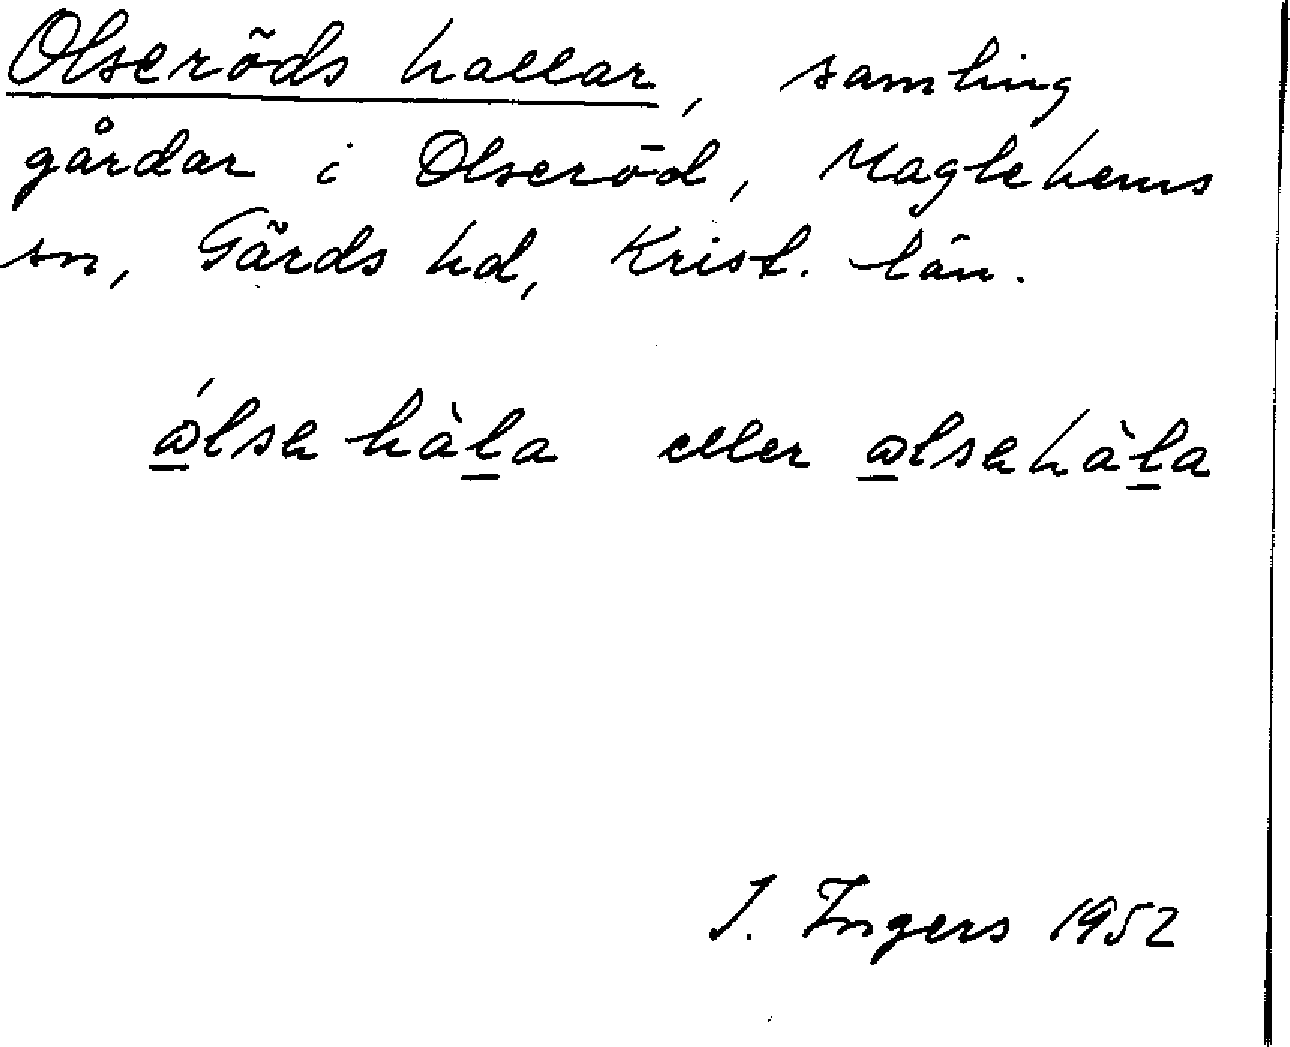 Olseröds hallar, samling
gårdar i Olseröd, Maglehems
sn, Gärds hd, Krist. län.
ólsahàla eller olsahàla
I. Ingers 1952